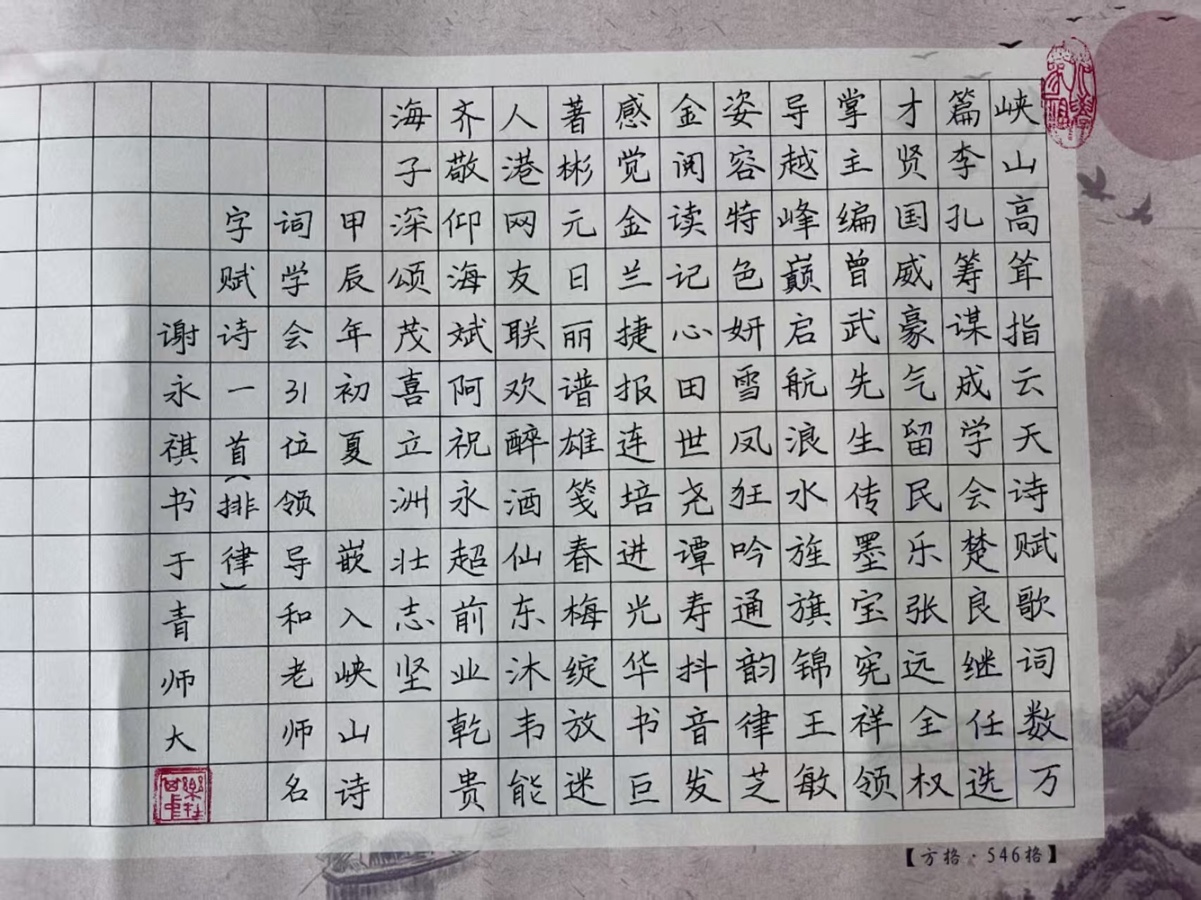 峡山高耸指云天诗赋歌词数万
篇李孔筹谋成学会楚良继任选
才贤国威豪气留民乐张远全权
掌主编曾武先生传墨宝宪祥领
导越峰巅启航浪水旌旗锦王敏
姿容特色妍雪凤狂吟通韵律芝
金阅读记心田世尧谭寿抖音发
感觉金兰捷报连培进光华书巨
著彬元日丽谱雄笺春梅绽放迷
人港网友联欢醉酒仙东沐韦能
齐敬仰海斌阿祝永超前业乾贵
海子深颂茂喜立洲壮志坚
甲辰年初夏 嵌入峡山诗
词学会31位领导和老师名
字赋诗一首(排律)
谢永祺书于青师大
【方格·546格】